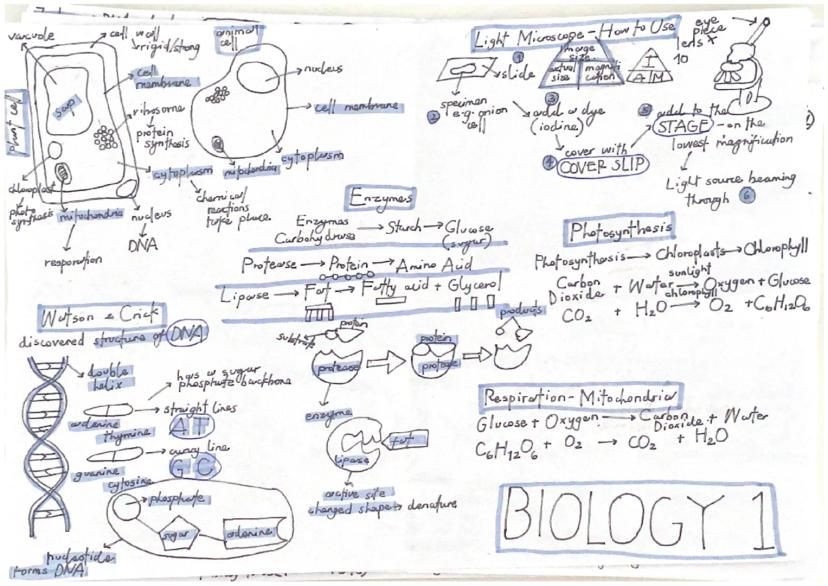 vacuole
cell wall
rigid/strong
cell
membrane
sap
ribosome
protein
synthesis
cytoplasm
chemical
reactions
take place
Plant cell
chloroplast
photo
synthesis
mitochondria
resporation
nucleus
DNA
animal
cell
nucleus
cell membrane
mitochondria
cytoplasm
Light Microscope - How to Use
1
slide
2
specimen
e.g. onion
cell
image
size
actual
size
magnifi
cation
I
A M
3
add a dye
(iodine)
4
cover with
COVER SLIP
5
add to the
STAGE - on the
lowest magnification
Light source beaming
through 6
eye
piece
lens x
10
Enzymes
Enzymes
Carbohydrase → Starch → Glucose
(sugar)
Protease → Protein → Amino Acid
Lipase → Fat → Fatty acid + Glycerol
substrate
protein
protease
enzyme
protein
protease
products
lipase
fat
active site
changed shape → denature
Photosynthesis
Photosynthesis → Chloroplasts → Chlorophyll
Carbon
Dioxide + Water
sunlight
chlorophyll
Oxygen + Glucose
CO₂ + H₂O → O₂ + C₆H₁₂O₆
Respiration - Mitochondria
Glucose + Oxygen → Carbon
Dioxide + Water
C₆H₁₂O₆ + O₂ → CO₂ + H₂O
Watson & Crick
discovered structure of DNA
double
helix
has a sugar
phosphate backbone
adenine
thymine
straight lines
A T
guanine
cytosine
curvy line
G C
phosphate
sugar
adenine
nucleotide
forms DNA
BIOLOGY 1